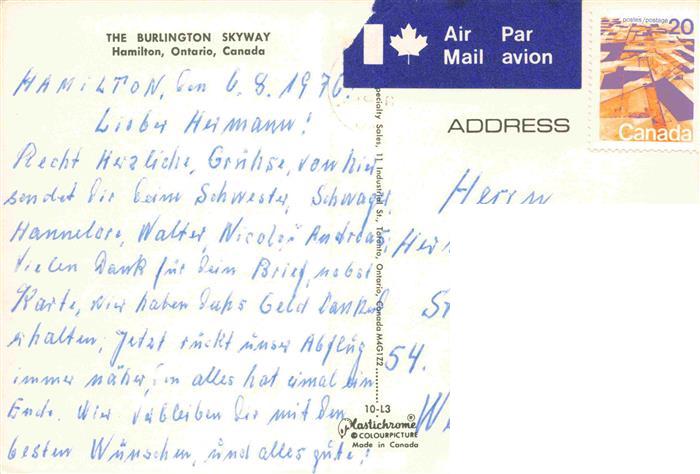 THE BURLINGTON SKYWAY
Hamilton, Ontario, Canada
Air Par
Mail avion
postes/postage 20
Canada
ADDRESS
HAMILTON, den 6.8.1976.
Lieber Hermann!
Recht Herzliche, Grühse, von hier
sendet dir deine Schwester, Schwager
Hannelore, Walter, Nicole, Andreas
Vielen Dank für dein Brief, nebst
Karte, wir haben dahs Geld Dankend
erhalten, Jetzt rückt unser Abflug
immer näher, den alles hat eimal ein
Ende. Wir verbleiben dir mit den
besten Wünschen, und alles gute!
Specialty Sales, 11 Industrial St., Toronto, Ontario, Canada M4G1Z2
10-L3
Plastichrome®
© COLOURPICTURE
Made in Canada
Herrn
54.